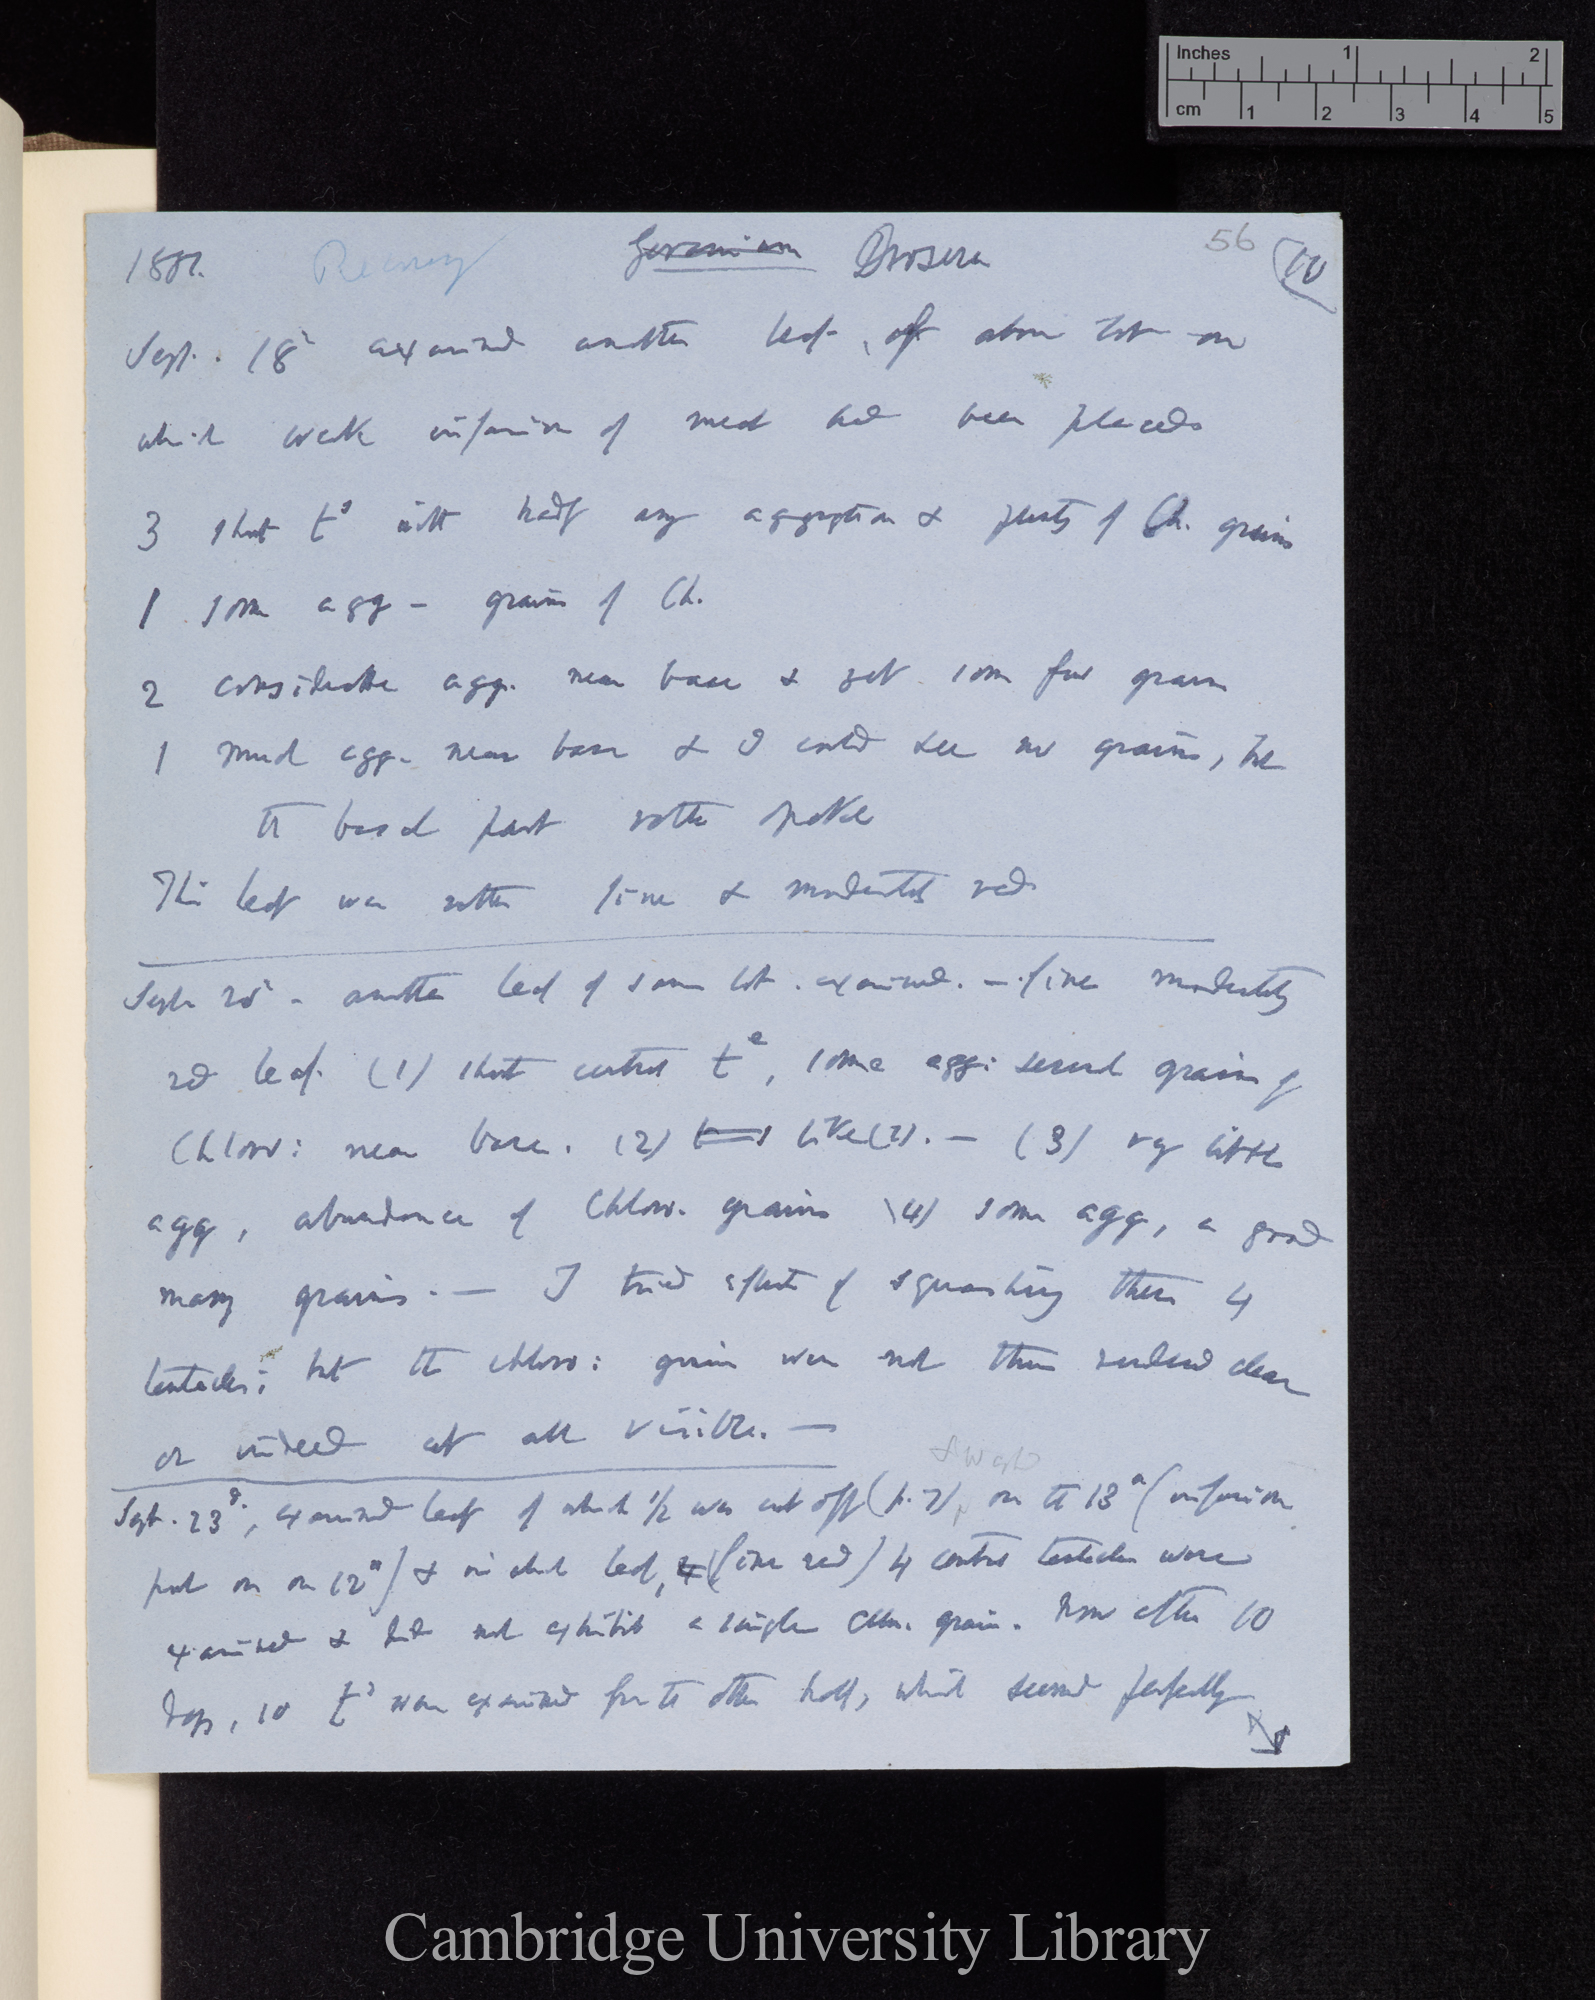 Inches 1 2
cm 1 2 3 4 5
1881. Geranium Drosera 56 (10
Sept. 18 examined another leaf, of above lot on
which weak infusion of meat had been placed
3 short ts with hardly any aggregation & plenty of Ch. grains
1 some agg – grains of Ch.
2 considerable agg. near base & yet some few grains
1 much agg. near base & I could see no grains, but
the basal part rather opake
This leaf was rather fine & moderately red
Sept 20 – another leaf of same lot. examined. — fine moderately
red leaf. (1) short central t, some agg: several grains of
Chloro: near base. (2) like (1). — (3) very little
agg, abundance of Chloro. grains (4) some agg, a good
many grains. — I tried effects of squashing these 4
tentacles; but the chloro: grains were not thus rendered clear
or indeed at all visible. —
Sept. 23d., examined leaf of which 1/2 was cut off (p. 7) on the 13th (infusion
put on on 12th) & in which leaf, (fine red) 4 central tentacles were
examined & did not exhibit a single Chlo. grain. Now after 10
days, 10 ts were examined from the other half, which seemed perfectly
Cambridge University Library